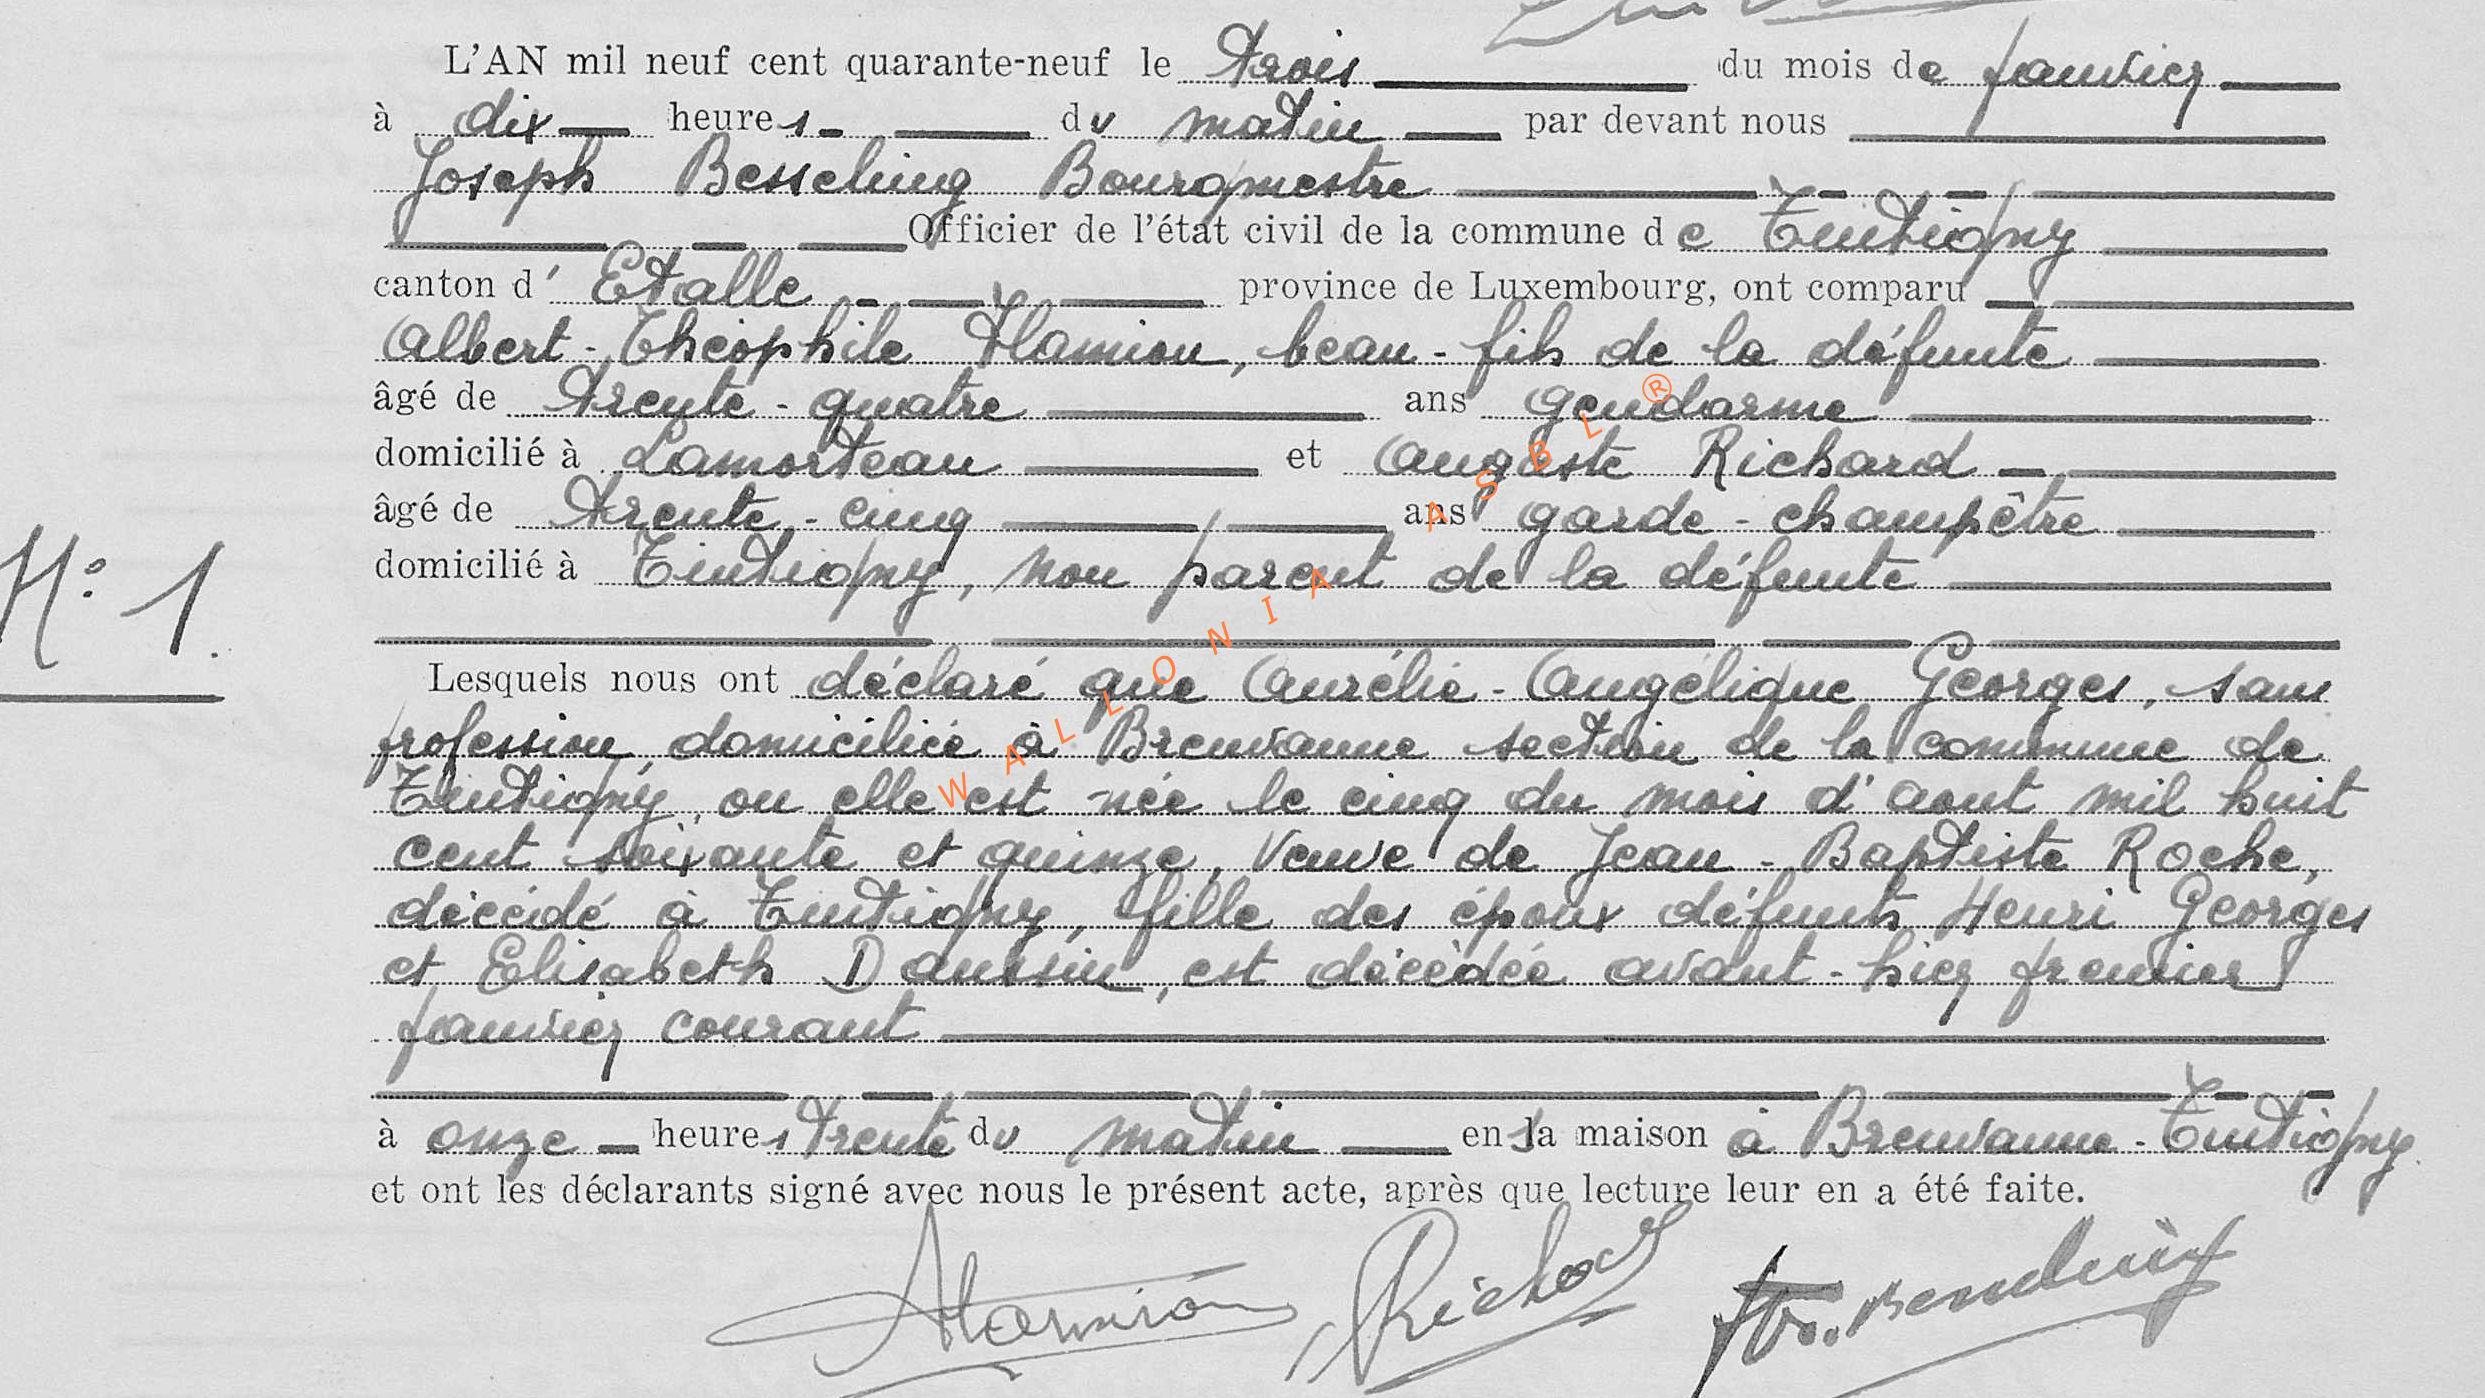 L'AN mil neuf cent quarante-neuf le trois du mois de janvier
à dix heures du matin par devant nous
Joseph Besseling Bourgmestre
Officier de l'état civil de la commune de Tintigny
canton d'Etalle province de Luxembourg, ont comparu
Albert-Théophile Hamion, beau-fils de la défunte
âgé de trente-quatre ans gendarme
domicilié à Lamorteau et Auguste Richard
âgé de trente-cinq ans garde-champêtre
domicilié à Tintigny, non parent de la défunte
N° 1.
Lesquels nous ont déclaré que Aurélie-Angélique Georges, sans
profession, domiciliée à Breuvanne section de la commune de
Tintigny, ou elle est née le cinq du mois d'aout mil huit
cent soixante et quinze, veuve de Jean-Baptiste Roche,
décédé à Tintigny, fille des époux défunts Henri Georges
et Elisabeth Daussin, est décédée avant-hier premier
janvier courant
à onze heures trente du matin en sa maison à Breuvanne-Tintigny.
et ont les déclarants signé avec nous le présent acte, après que lecture leur en a été faite.
Hamion Richard Jos. Besseling
WALLONIA ASBL ®